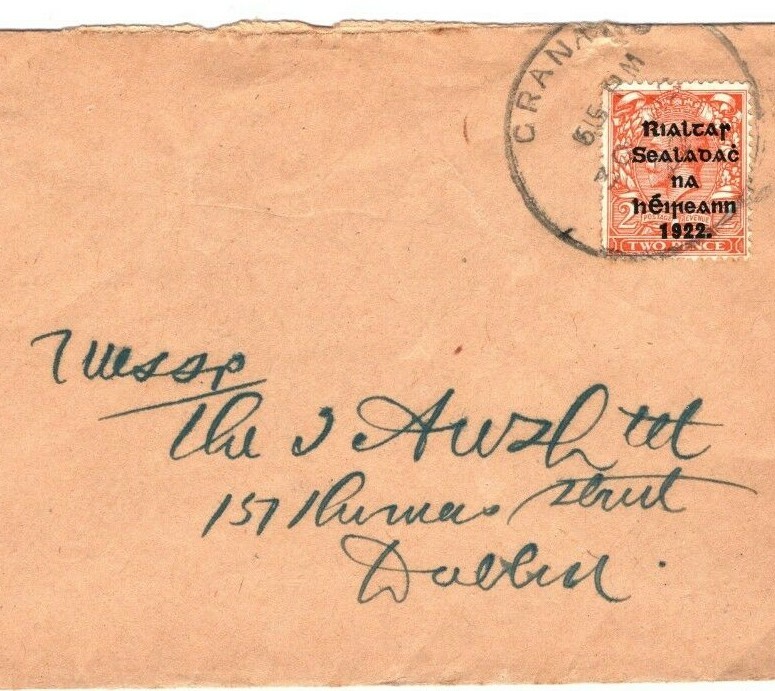 GRAN
5 15 PM
Rialtaſ
Sealadaċ
na
hÉiſeann
1922.
2 POSTAGE REVENUE 2
TWO PENCE
Messrs
The
157 Thomas Street
Dublin.